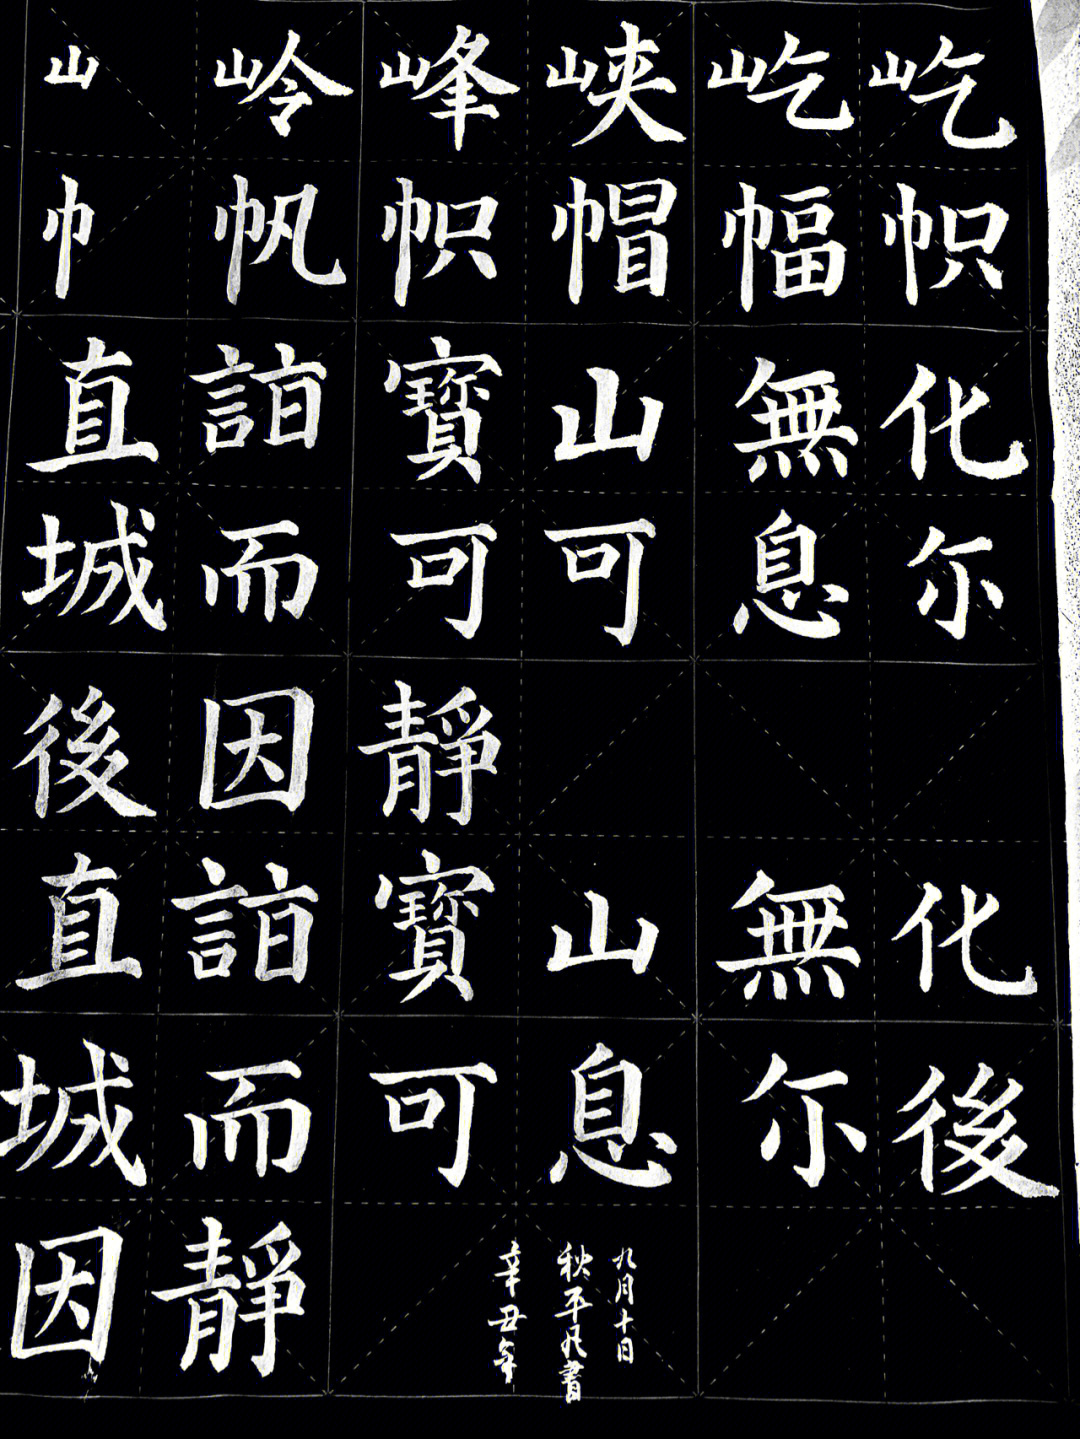 山岭峰峡屹屹
巾帆帜帽幅帜
直詣寶山無化
城而可可息尔
後因靜
直詣寶山無化
城而可息尔後
因靜
辛丑年
秋平凡書
九月十日